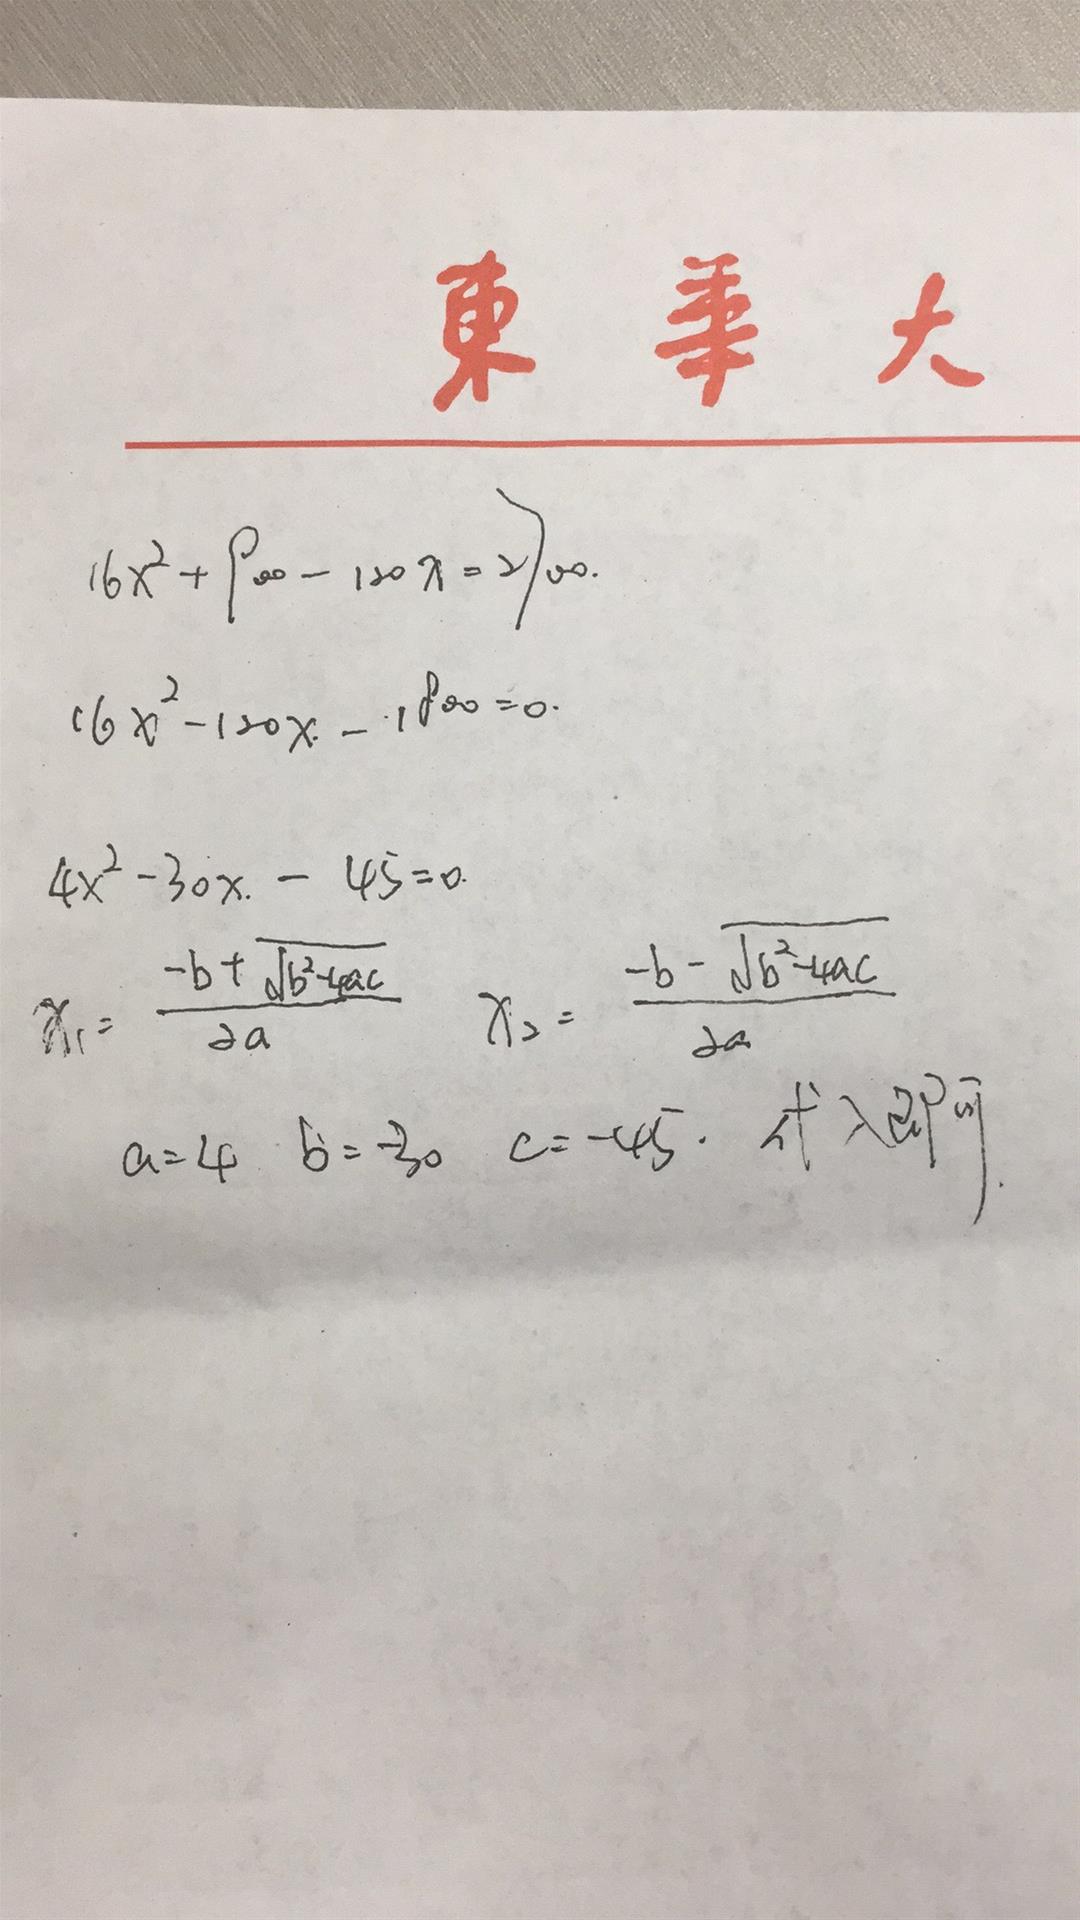 東華大
16x²+900-120x=2700.
16x²-120x-1800=0.
4x²-30x-45=0.
x₁=(-b+√(b²-4ac))/2a x₂=(-b-√(b²-4ac))/2a
a=4 b=-30 c=-45. 代入即可.